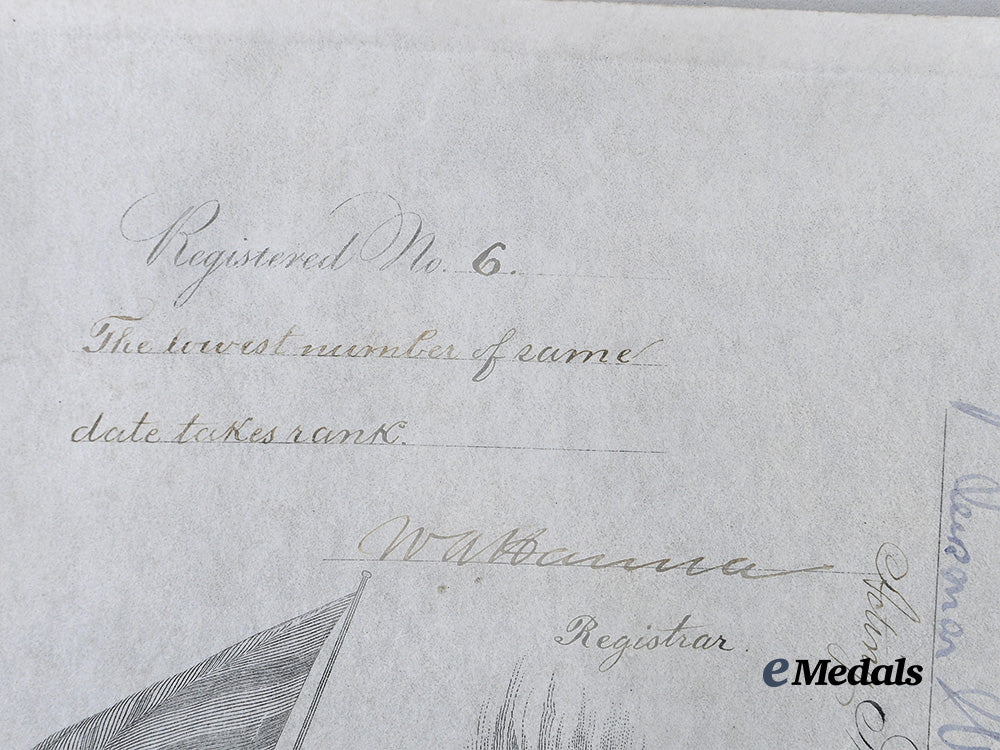 Registered No. 6.
The lowest number of same
date takes rank.
W A Hanna
Registrar.
Acting
eMedals